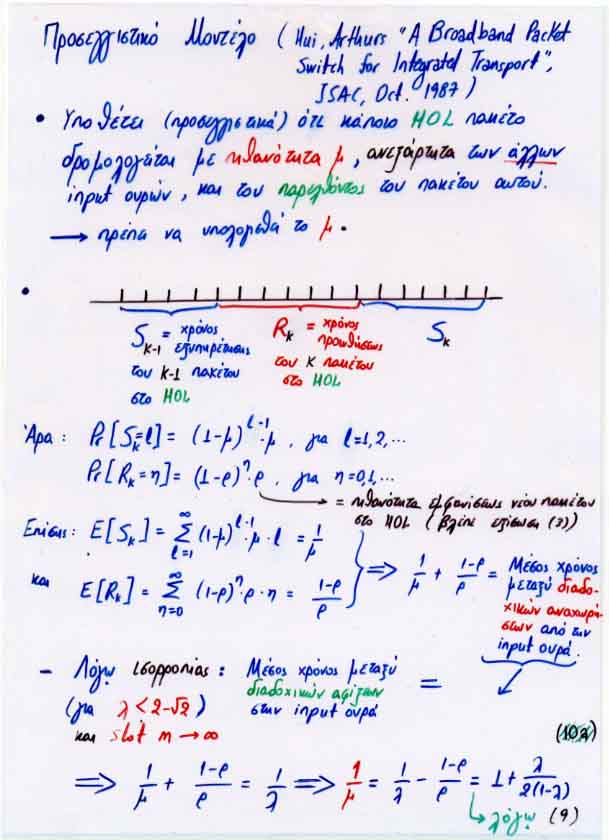 Προσεγγιστικό Μοντέλο (Hui, Arthurs "A Broadband Packet
Switch for Integrated Transport",
JSAC, Oct. 1987)
• Υποθέτει (προσεγγιστικά) ότι κάποιο HOL πακέτο
δρομολογείται με πιθανότητα μ, ανεξάρτητα των άλλων
input ουρών, και του παρελθόντος του πακέτου αυτού.
→ πρέπει να υπολογισθεί το μ.
•
S_{k-1} = χρόνος εξυπηρέτησης
του k-1 πακέτου
στο HOL
R_k = χρόνος προωθήσεως
του k πακέτου
στο HOL
S_k
Άρα: Pr[S_k=l] = (1-μ)^{l-1}·μ, για l=1,2,...
Pr[R_k=η] = (1-ρ)^η·ρ, για η=0,1,...
= πιθανότητα εμφανίσεως νέου πακέτου
στο HOL (βλέπε εξίσωση (3))
Επίσης: E[S_k] = Σ_{l=1}^{∞} (1-μ)^{l-1}·μ·l = 1/μ
και E[R_k] = Σ_{η=0}^{∞} (1-ρ)^η ρ·η = (1-ρ)/ρ
⇒ 1/μ + (1-ρ)/ρ = Μέσος χρόνος
μεταξύ διαδο-
χικών αναχωρή-
σεων από την
input ουρά.
- Λόγω ισορροπίας: Μέσος χρόνος μεταξύ
(για λ < 2-√2) διαδοχικών αφίξεων =
και slot m → ∞ στην input ουρά
(10a)
⇒ 1/μ + (1-ρ)/ρ = 1/λ ⇒ 1/μ = 1/λ - (1-ρ)/ρ = 1 + λ/(2(1-λ))
λόγω (9)